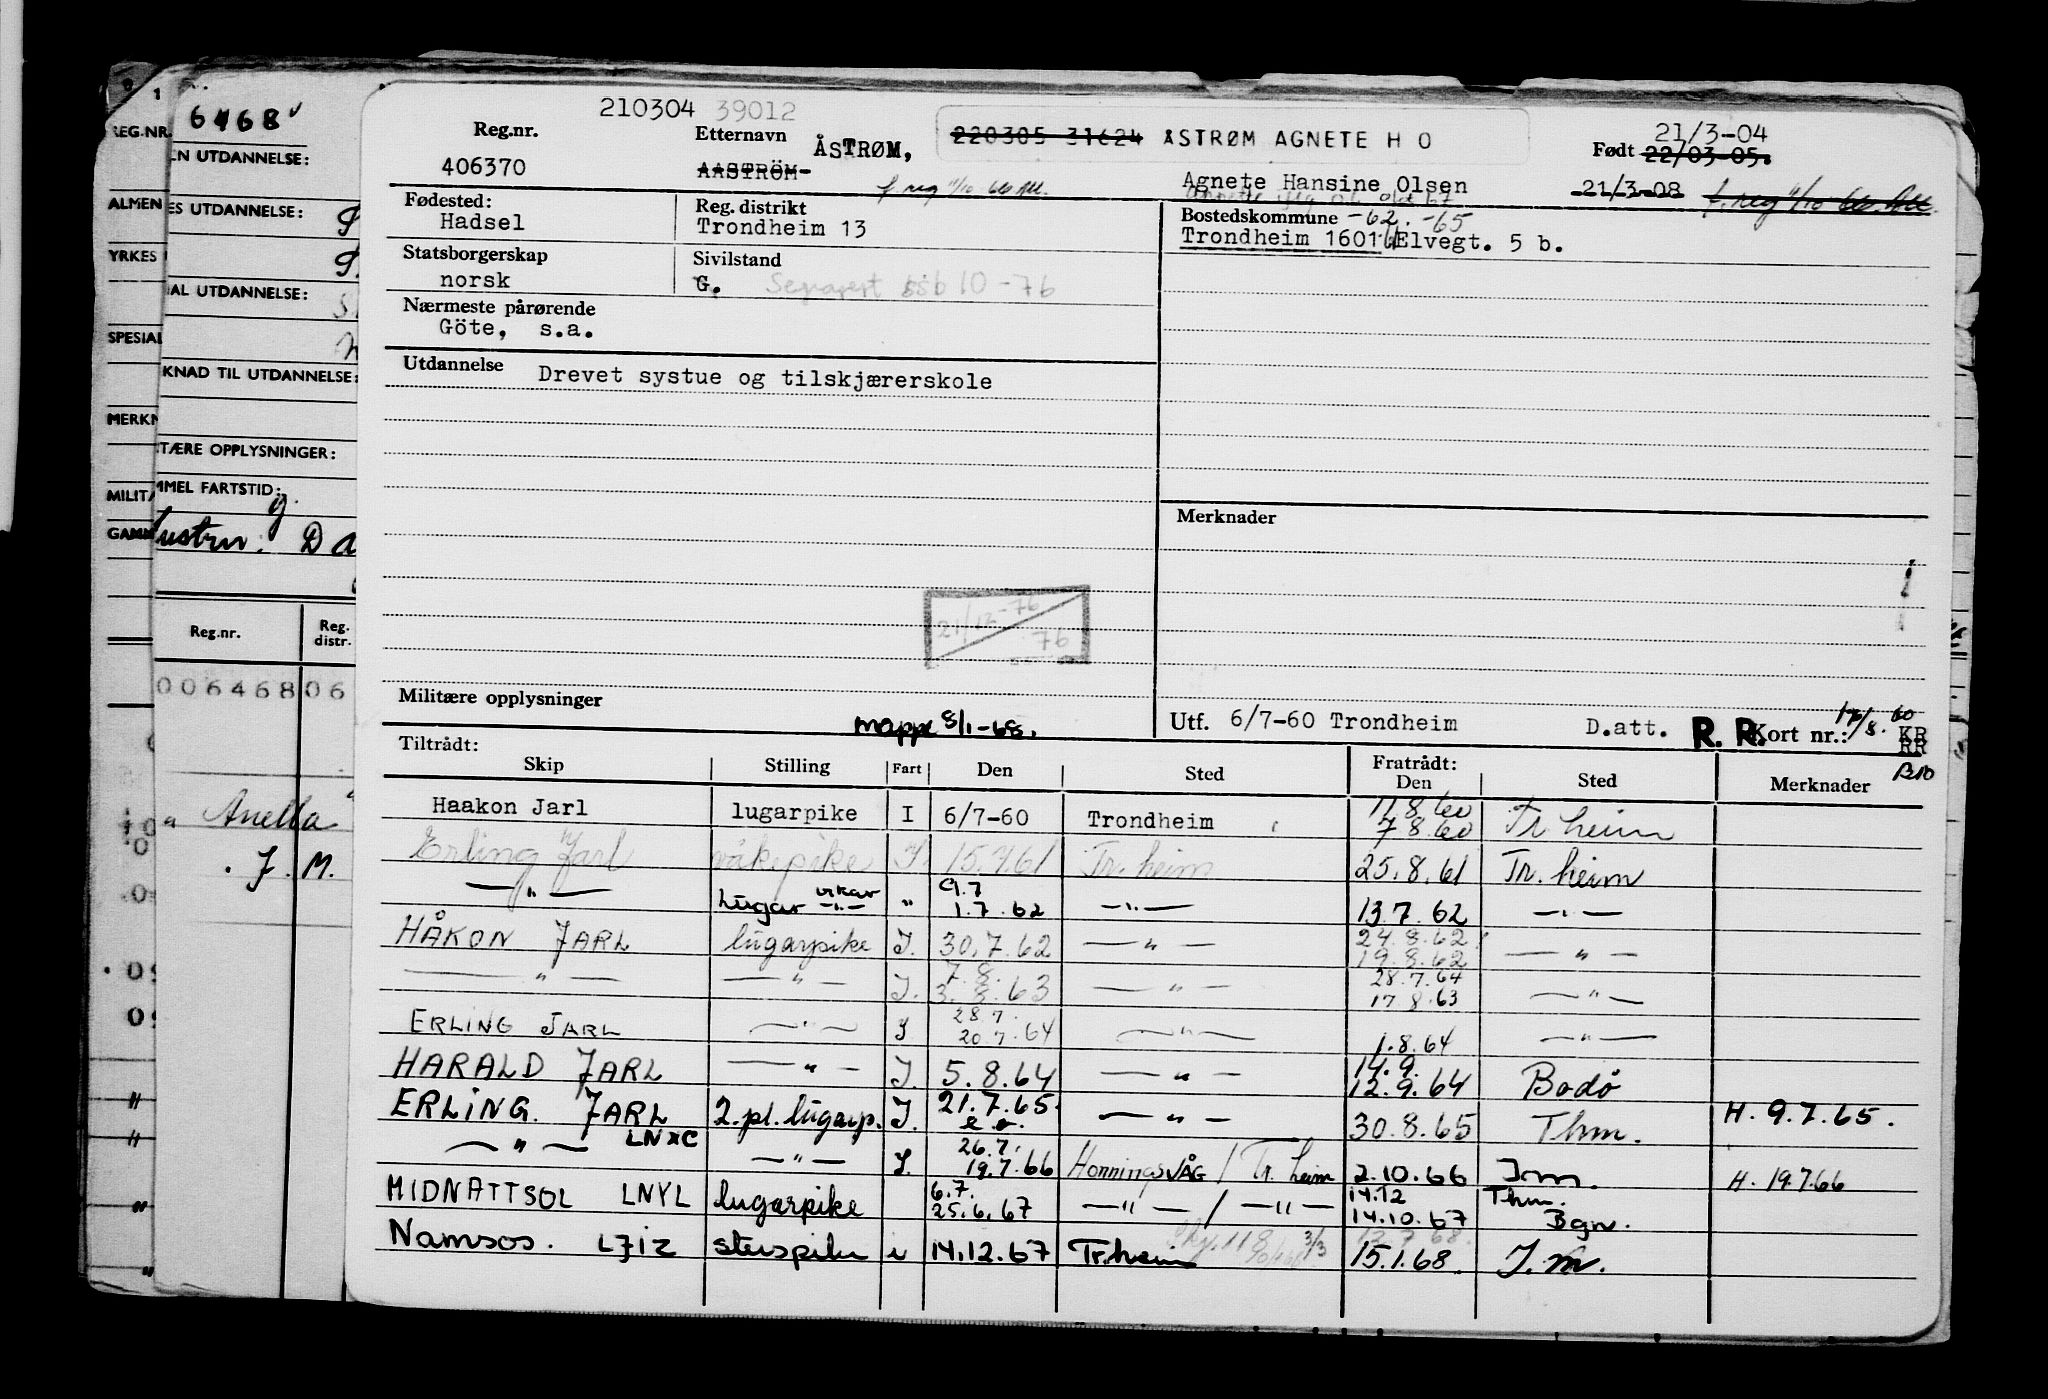 210304 39012
Reg.nr. Etternavn ÅSTRØM, 220305 31624 ÅSTRØM AGNETE H O 21/3-04
406370 AASTRÖM Født 22/03-05.
Agnete Hansine Olsen 21/3-08
Fødested: Reg. distrikt Bostedskommune -62. -65
Hadsel Trondheim 13 Trondheim 1601 Elvegt. 5 b.
Statsborgerskap Sivilstand
norsk G. Separert 10-76
Nærmeste pårørende
Göte, s.a.
Utdannelse Drevet systue og tilskjærerskole
Merknader
21/12-76
76
Militære opplysninger
mappe 8/1-68.
Utf. 6/7-60 Trondheim D.att. R. R. Kort nr.: 17/8. 60 KR
RR
Tiltrådt: Fratrådt:
Skip Stilling Fart Den Sted Den Sted Merknader
Haakon Jarl lugarpike I 6/7-60 Trondheim 11.8.60 7.8.60 Tr heim
Erling Jarl våkepike I. 15.7.61 Tr. heim 25.8.61 Tr. heim
—"— Lugar vikar —"— " 9.7 1.7.62 —"— 13.7.62 —"—
HÅKON JARL lugarpike I. 30.7.62 —"— 24.8.62 19.8.62 —"—
—"— —"— I. 7.8. 3.8.63 —"— 28.7.64 17.8.63 —"—
ERLING JARL —"— I 28.7. 20.7.64 —"— 1.8.64 —"—
HARALD JARL —"— I. 5.8.64 —"— 14.9. 12.9.64 Bodø
ERLING. JARL 2.pl.lugarp. I. 21.7.65. e.o. —"— 30.8.65 Thm. H. 9.7.65.
—"— LNXC —"— I. 26.7. 19.7.66 HonningsVÅG / Tr. heim 2.10.66 I.m. H. 19.7.66
MIDNATTSOL LNYL lugarpike 6.7. 25.6.67 —"— / —"— 14.12 14.10.67 Thm. Bgn.
Namsos. LJIZ i 14.12.67 Tr.heim 3/3 15.1.68. I.m.
6468
REG.NR.
EN UTDANNELSE:
ALMEN ES UTDANNELSE:
YRKES
AL UTDANNELSE:
SPESIAL
KNAD TIL UTDANNELSE:
MERKN
TÆRE OPPLYSNINGER:
MILITÆ MMEL FARTSTID:
GAMM
Reg.nr. Reg. distr.
006468 06
J. M.